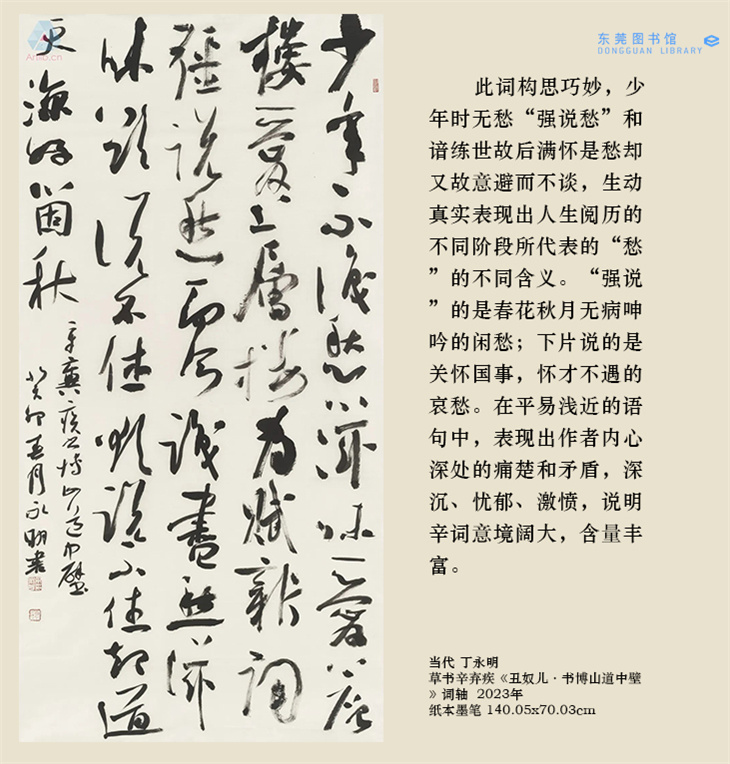 东莞图书馆
DONGGUAN LIBRARY
Artlib.cn
少年不識愁滋味愛上層
樓愛上層樓為賦新詞
强説愁而今識盡愁滋
味欲説还休欲説还休却道
天凉好箇秋
辛棄疾書博山道中壁
癸卯春月永明書
此词构思巧妙，少
年时无愁“强说愁”和
谙练世故后满怀是愁却
又故意避而不谈，生动
真实表现出人生阅历的
不同阶段所代表的“愁
”的不同含义。“强说
”的是春花秋月无病呻
吟的闲愁；下片说的是
关怀国事，怀才不遇的
哀愁。在平易浅近的语
句中，表现出作者内心
深处的痛楚和矛盾，深
沉、忧郁、激愤，说明
辛词意境阔大，含量丰
富。
当代 丁永明
草书辛弃疾《丑奴儿·书博山道中壁
》词轴 2023年
纸本墨笔 140.05x70.03cm